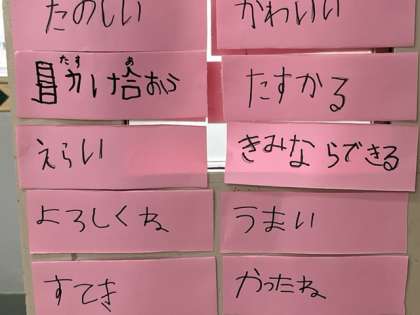 たのしい
かわいい
たす あ
助け合おう
たすかる
えらい
きみならできる
よろしくね
うまい
すてき
かったね